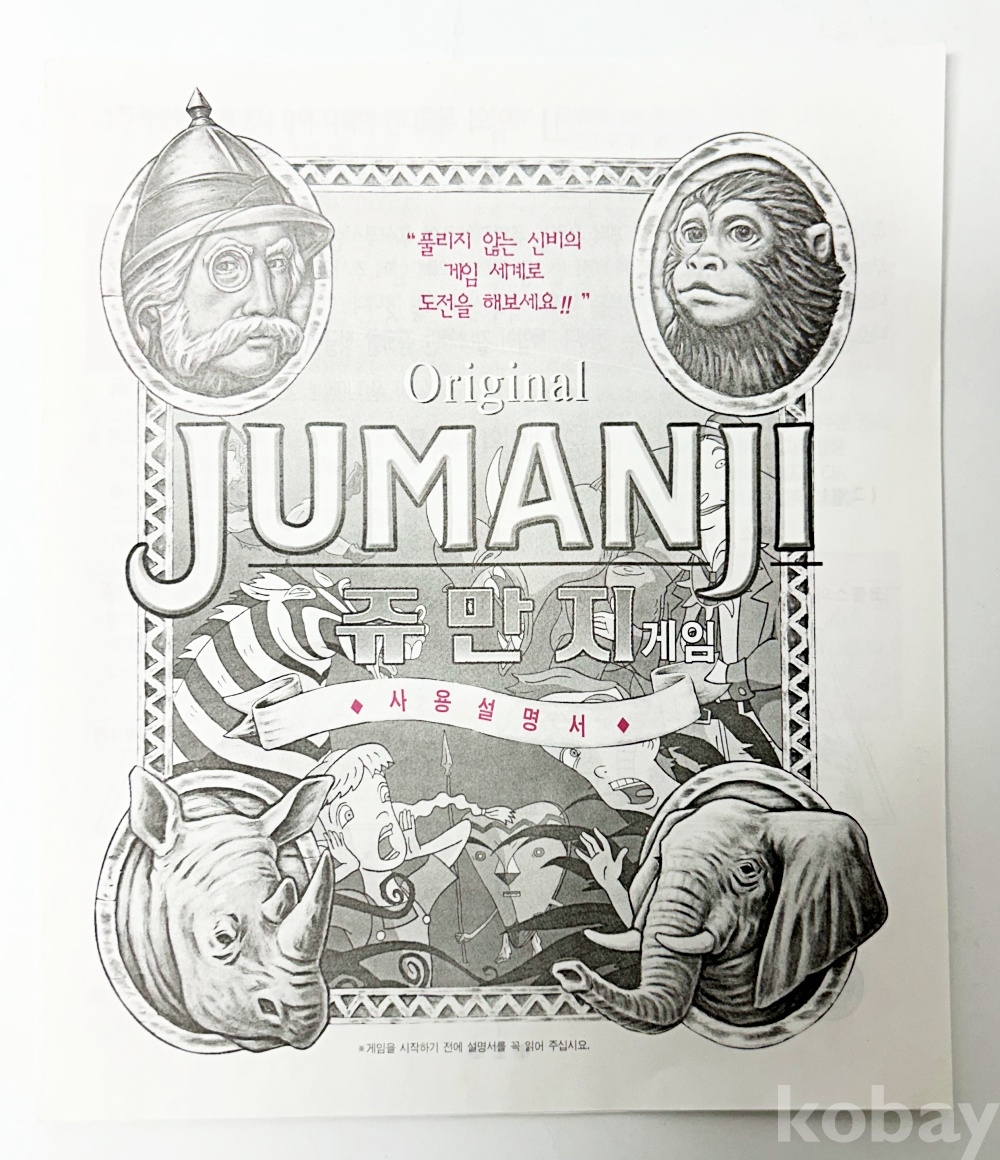 “풀리지 않는 신비의
게임 세계로
도전을 해보세요!!”
Original
JUMANJI
쥬만지게임
♦사용설명서♦
※게임을 시작하기 전에 설명서를 꼭 읽어 주십시요.
kobay